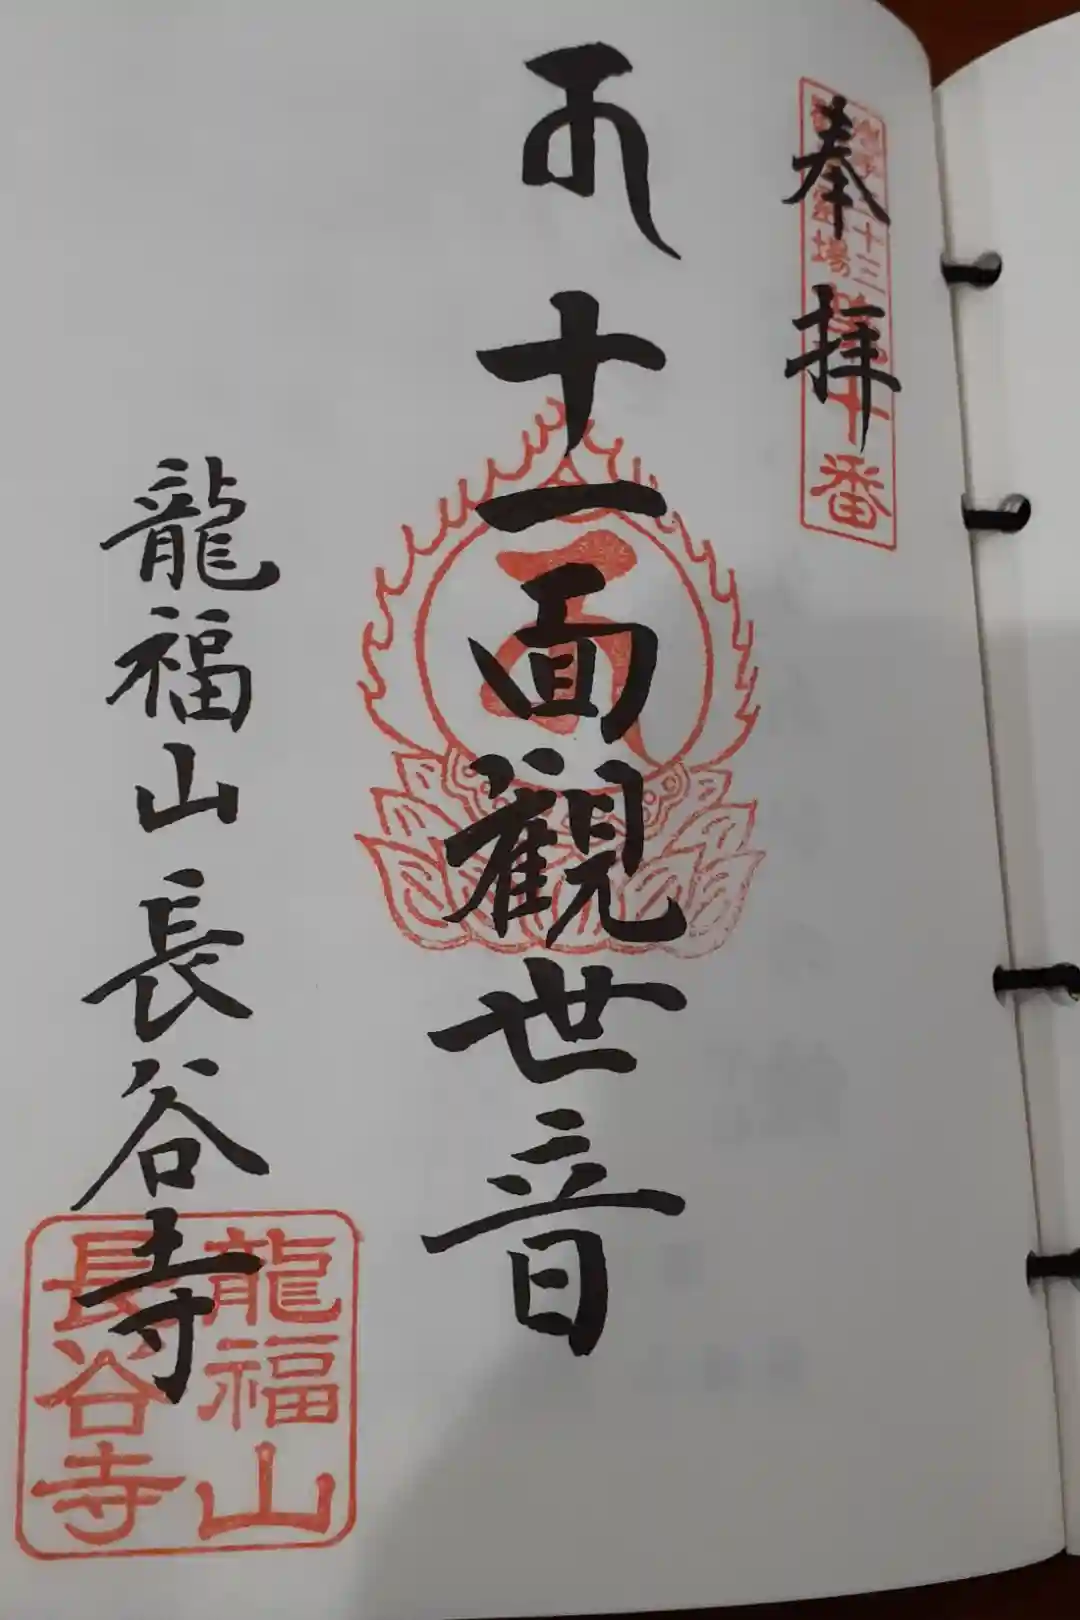 奉拝
十三
場
十番
十一面觀世音
龍福山長谷寺
龍福山
長谷寺